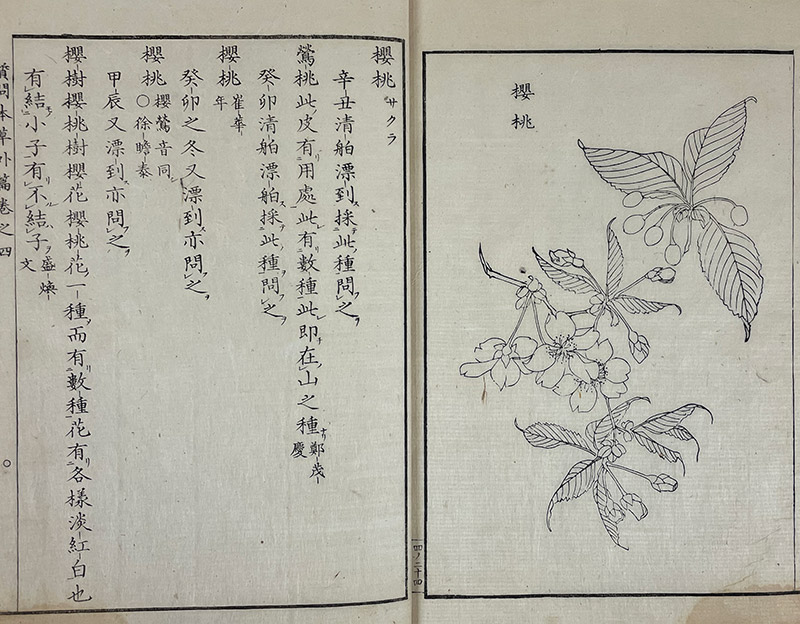 櫻桃
櫻桃 サクラ
辛丑清舶漂到採此種問之
鶯桃此皮有用處此有數種此即在山之種 鄭茂慶
癸卯清舶漂舶採此種問之
櫻桃 崔華年
癸卯之冬又漂到亦問之
櫻桃 櫻鶯音同 ○徐瞻泰
甲辰又漂到亦問之
櫻樹櫻桃樹櫻花櫻桃花一種而有數種花有各樣淡紅白也
有結小子有不結子 盛煥文
質問本草外篇卷之四
四ノ二十四